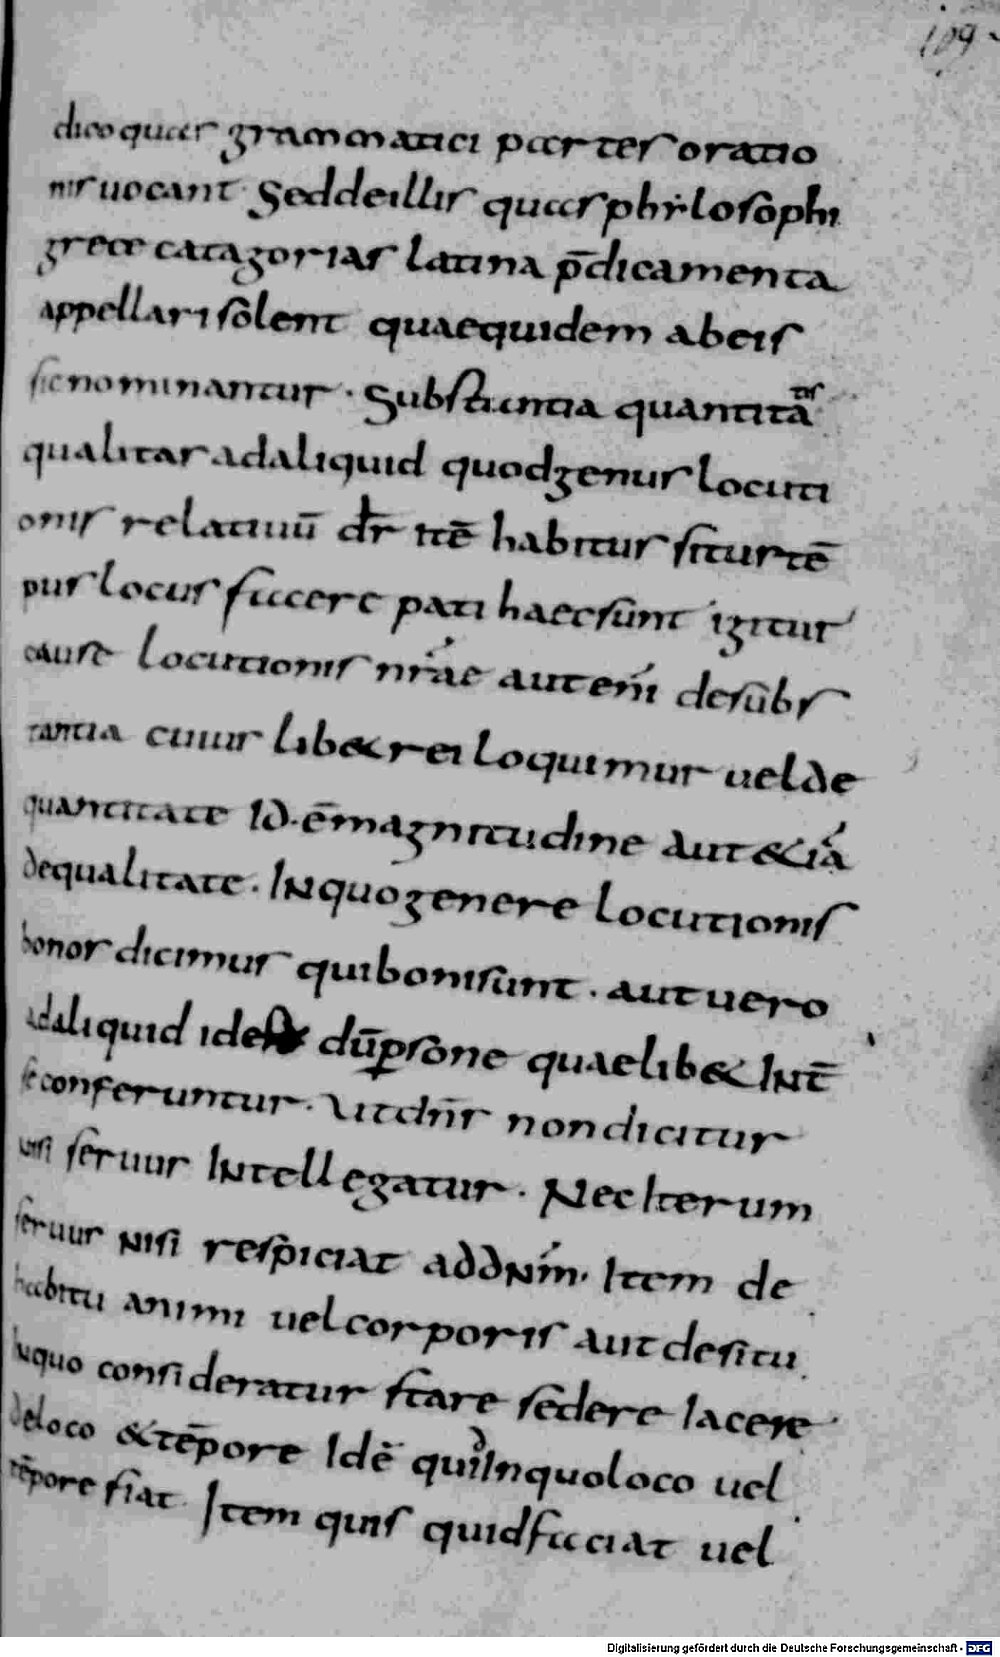 109
dico quas grammatici partes oratio
nis uocant. Sed de illis quas phylosophi
grece catagorias latina p̄dicamenta
appellari solent quae quidem ab eis
sic nominantur. Substantia quantitas
qualitas ad aliquid quod genus locuti
onis relatiuū dr̄ itē habitus situs tē
pus locus facere pati haec sunt igitur
cause locutionis nr̄ae autem de subs
tantia cuius lib& rei loquimur uel de
quantitate id. ē magnitudine aut &iā
de qualitate. In quo genere locutionis
bonos dicimus qui boni sunt. aut uero
ad aliquid idest dū p̱sone quae lib& int̄
se conferuntur. Ut dn̄s non dicitur
nisi seruus intellegatur. Nec iterum
seruus nisi respiciat ad dn̄m. Item de
habitu animi uel corporis aut de situ
in quo consideratur stare sedere iacere
de loco & tēpore idē quid in quo loco uel
tēpore fiat. Item quis quid faciat uel
Digitalisierung gefördert durch die Deutsche Forschungsgemeinschaft - DFG